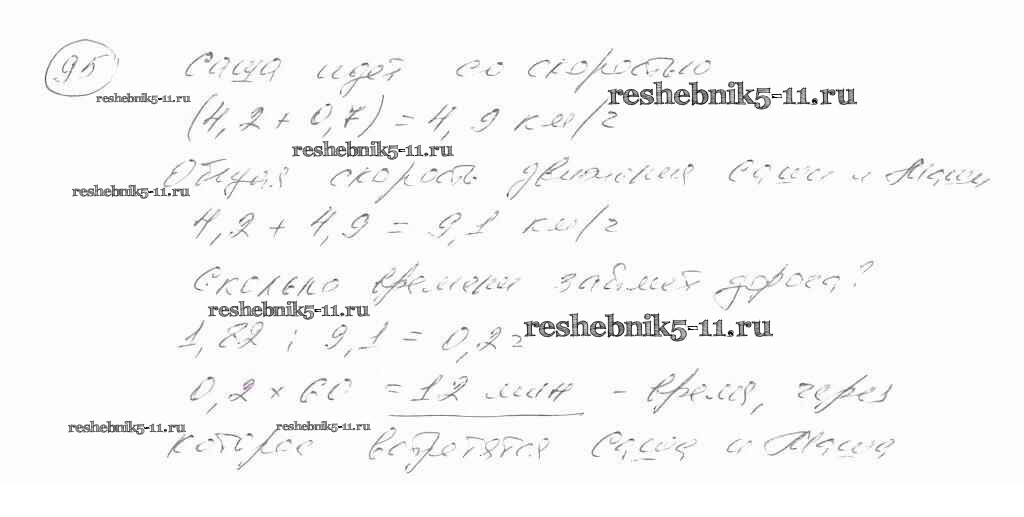 95 Саша идёт со скоростью
reshebnik5-11.ru
reshebnik5-11.ru
(4,2 + 0,7) = 4,9 км/ч
reshebnik5-11.ru
Общая скорость движения Саши и Маши
reshebnik5-11.ru
4,2 + 4,9 = 9,1 км/ч
Сколько времени займет дорога?
reshebnik5-11.ru
1,82 : 9,1 = 0,2 ч
reshebnik5-11.ru
0,2 × 60 = 12 мин - время, через
reshebnik5-11.ru
reshebnik5-11.ru
которое встретятся Саша и Маша